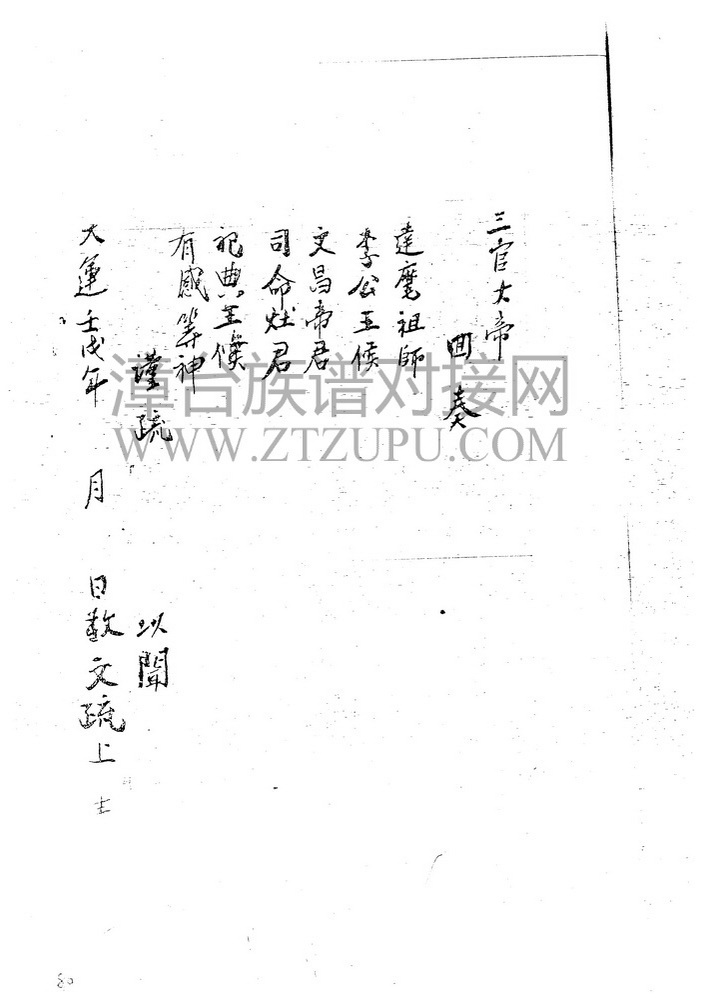 三官大帝
囬奏
達魔祖師
李公王侯
文昌帝君
司命灶君
祀典王候
有感等神
謹疏
以聞
大運壬戌年 月 日敬文疏上
漳台族谱对接网
WWW.ZTZUPU.COM